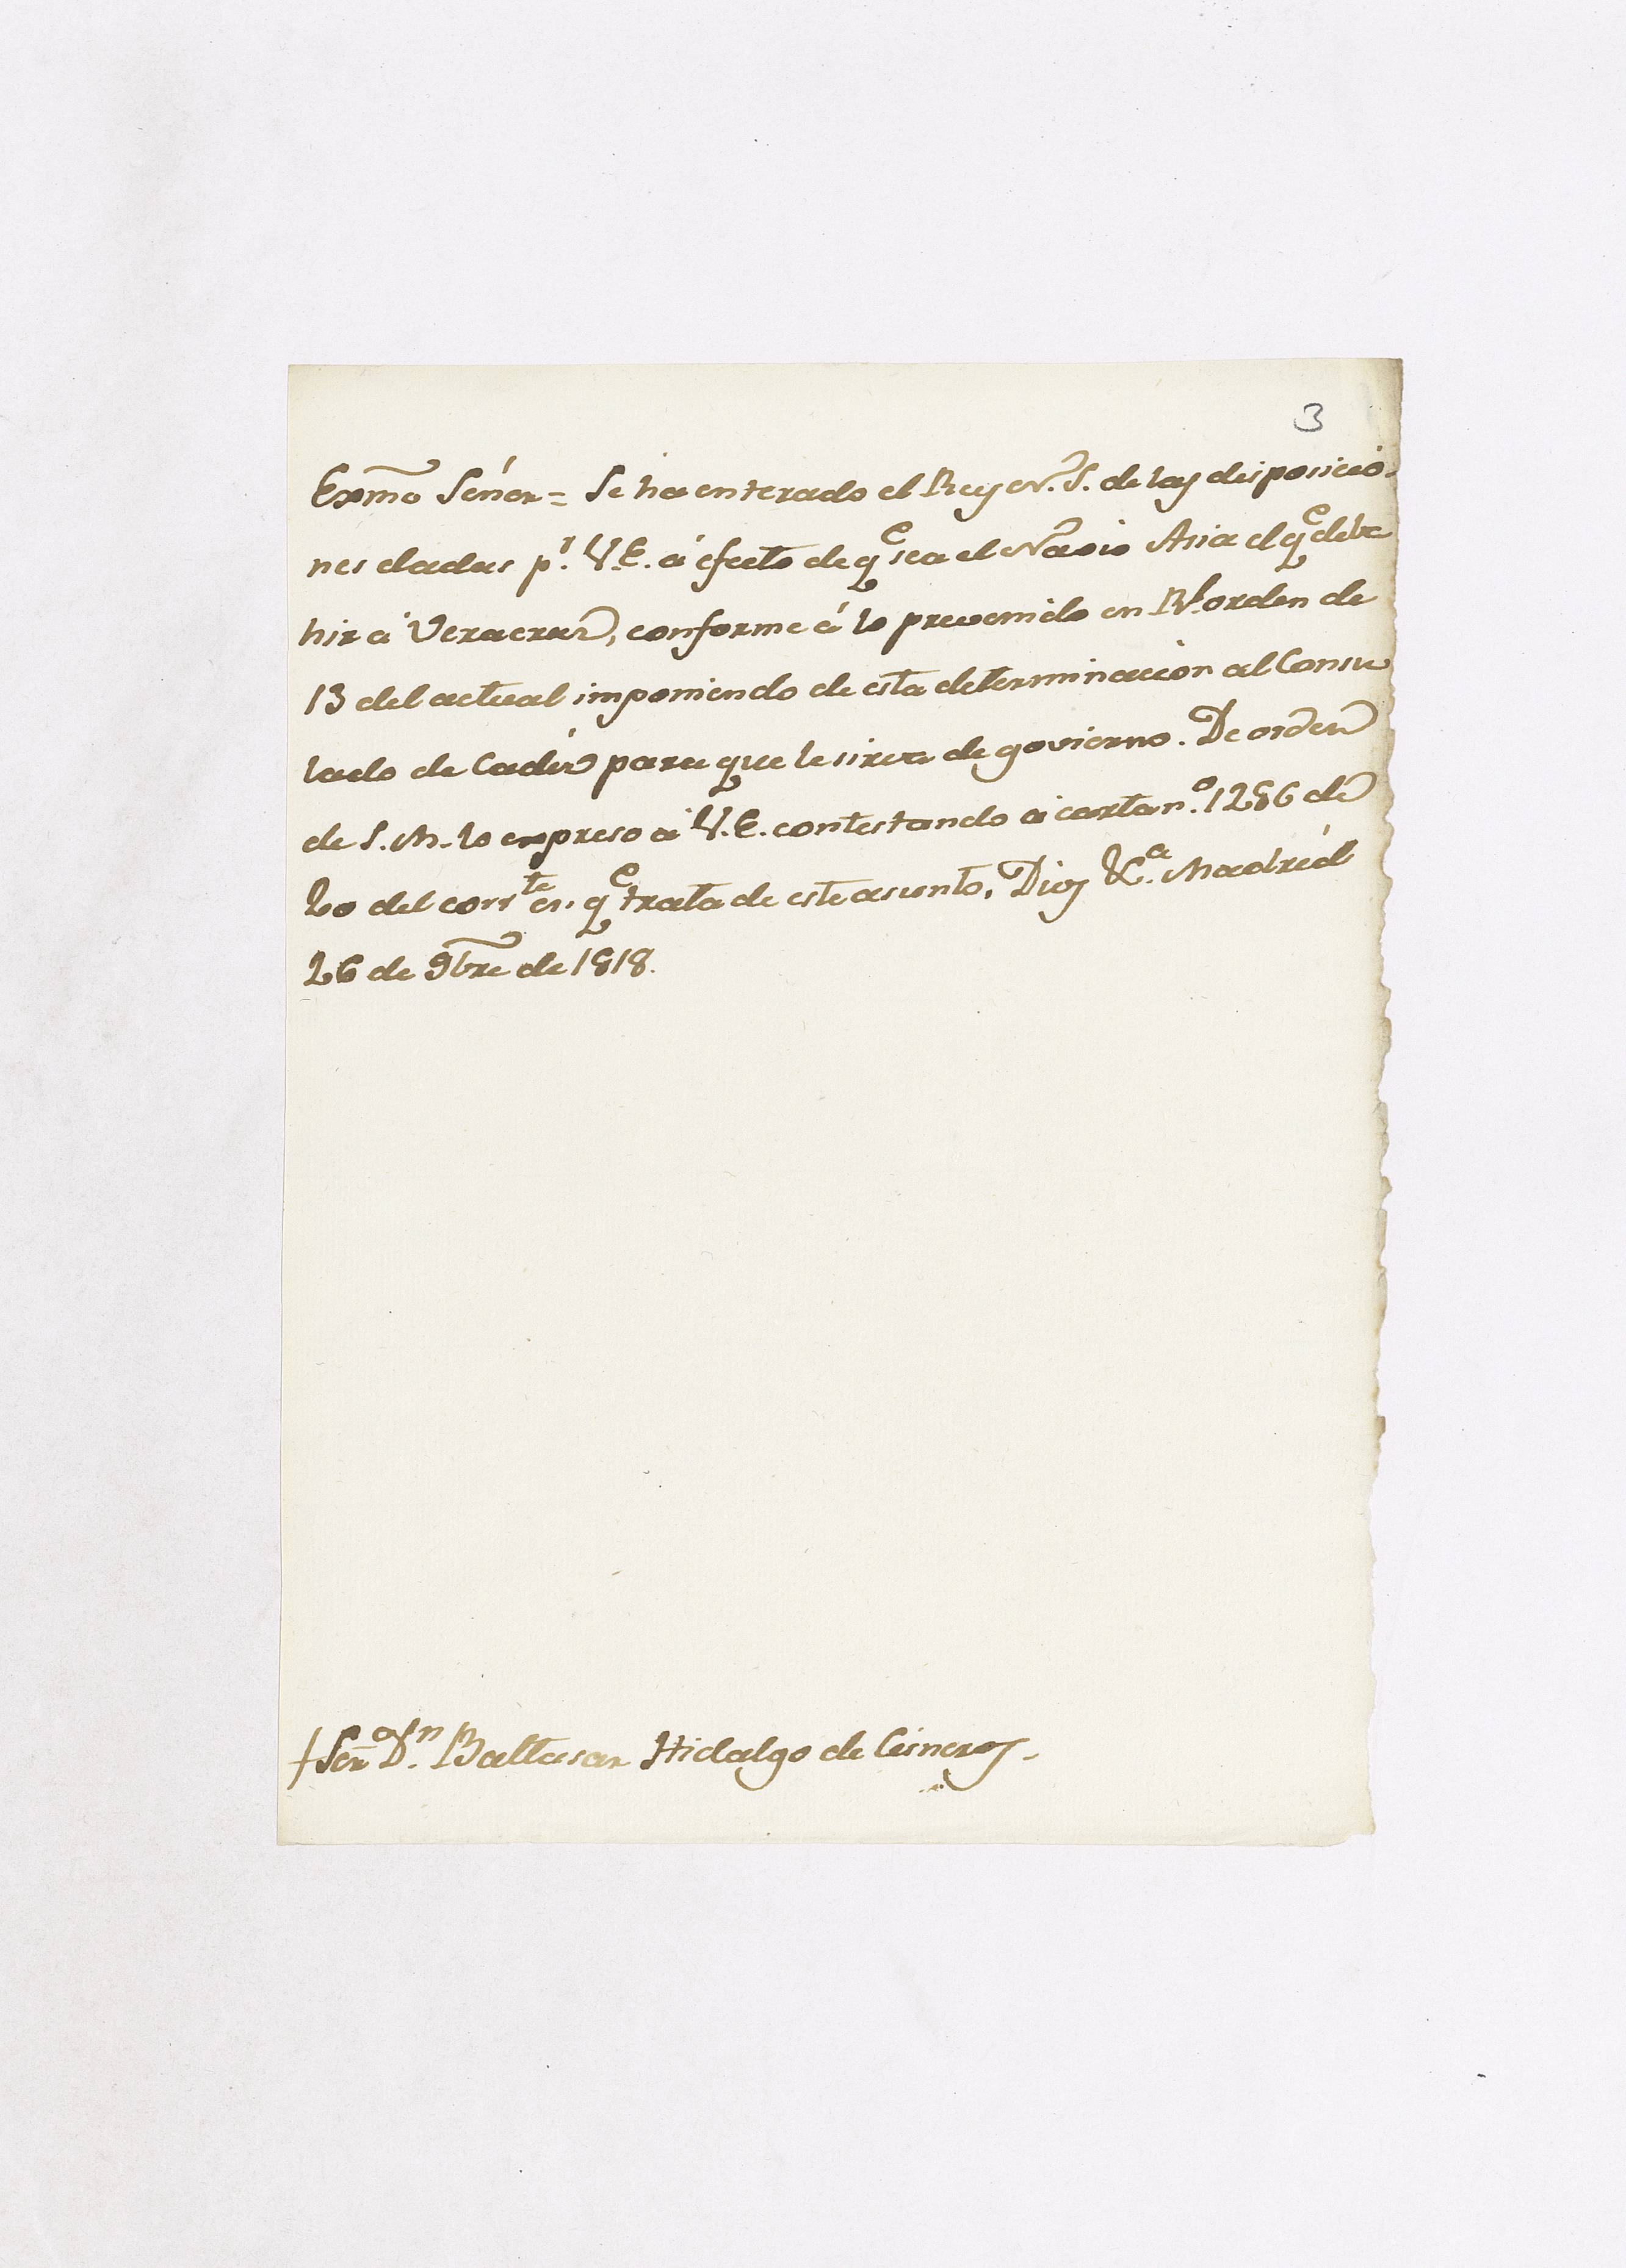 3
Exmo Señor = Se ha enterado el Rey N. S. de las disposicio-
nes dadas pr. V.E. á efecto de qe sea el Navio Asia el qe deba
hir á Veracruz, conforme á lo prevenido en Rl. orden de
13 del actual imponiendo de esta determinacion al Consu
lado de Cadiz para que le sirva de govierno. De orden
de S. M. lo expreso á V. E. contestando á carta n.o 1286 de
20 del corrte en qe trata de este asunto. Dios &.a Madrid
26 de 9bre de 1818.
Señor Dn. Baltasar Hidalgo de Cisneros.